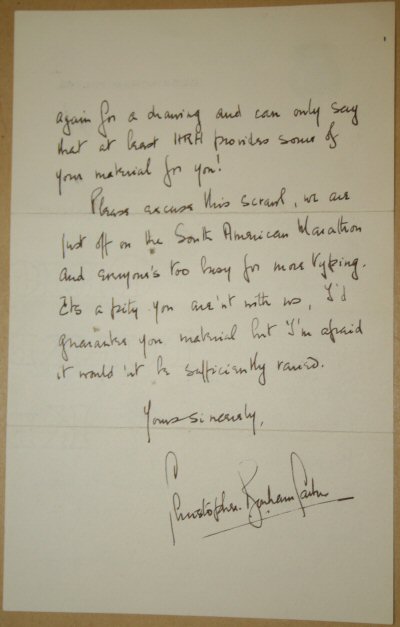 again for a drawing and can only say
that at least HRH provides some of
your material for you!
Please excuse this scrawl, we are
just off on the South American Marathon
and everyone's too busy for more typing.
Its a pity you are'nt with us, I'd
guarantee you material but I'm afraid
it would'nt be sufficiently varied.
Yours sincerely,
Christopher Bonham Carter